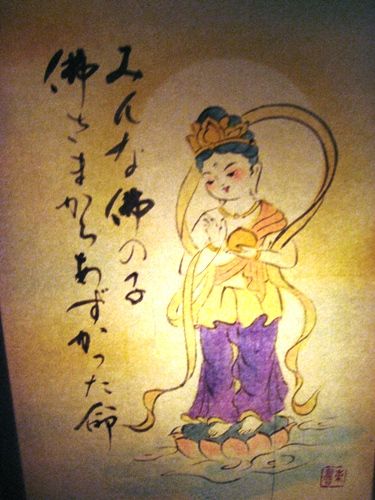 みんな佛の子
佛さまからあずかった命